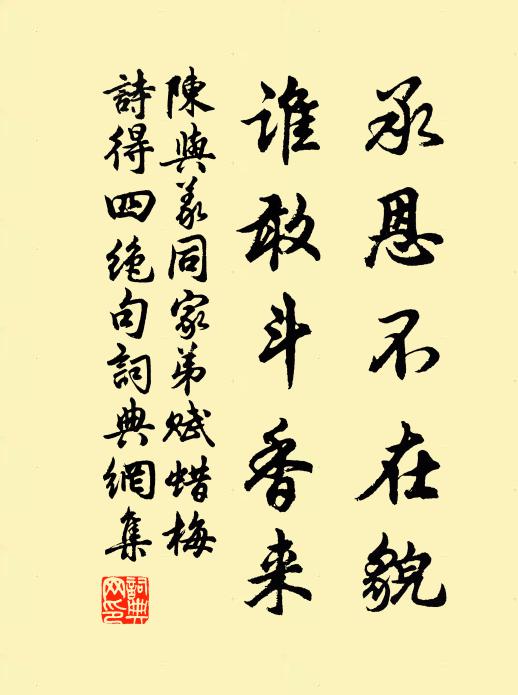 承恩不在貌
谁敢斗香来
陳與義同家弟赋蜡梅
詩得四绝句詞典網集
詞典网印